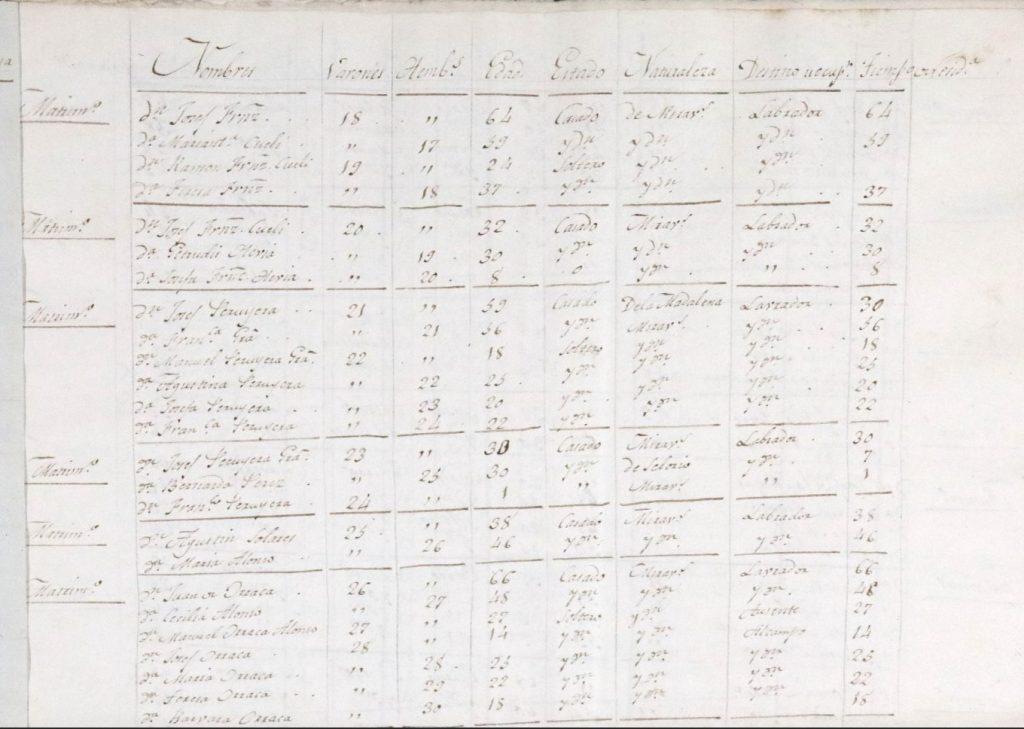 Nombres Varones Hemb.s Edad Estado Naturaleza Destino u ocup.n Tiempo
Matrim.o d.n Josef Frnz. 18 " 64 Casado de Mirav.s Labrador 64
" 17 59 ydn ydn ydn 59
d.n Ramon Frnz. Cueli 19 " 24 Soltero ydn ydn
Frnz. " 18 37 ydn ydn ydn 37
Matrim.o d.n Josef Frnz. Cueli 20 " 32 Casado Mirav.s Labrador 32
d.a " 19 30 ydn ydn ydn 30
d.a Josefa Frnz. " 20 8 o ydn " 8
Matrim.o d.n Josef 21 " 59 Casado De la Madalena Lavrador 30
d.a Fran.ca Gra. " 21 56 ydn Mirav.s ydn 56
d.n Manuel Gra. 22 " 18 Soltero ydn ydn 18
d.a Agustina " 22 25 ydn ydn ydn 25
d.a Josefa " 23 20 ydn ydn ydn 20
d.a Fran.ca " 24 22 ydn ydn ydn 22
Matrim.o d.n Josef Gra. 23 " 30 Casado Mirav.s Labrador 30
d.a Bernarda Perez " 25 30 ydn de Selorio ydn 7
d.n Fran.co 24 " 1 " Mirav.s " 1
Matrim.o d.n Agustin Solares 25 " 38 Casado Mirav.s Labrador 38
d.a Maria Alonso " 26 46 ydn ydn ydn 46
Matrim.o d.n Juan de Orraca 26 " 66 Casado Mirav.s Lavrador 66
d.a Cecilia Alonso " 27 48 ydn ydn ydn 48
d.n Manuel Orraca Alonso 27 " 27 Soltero ydn Ausente 27
d.n Josef Orraca 28 " 14 ydn ydn Alcampo 14
d.a Maria Orraca " 28 25 ydn ydn ydn 25
d.a Teresa Orraca " 29 22 ydn ydn ydn 22
d.a Barvara Orraca " 30 18 ydn ydn ydn 18